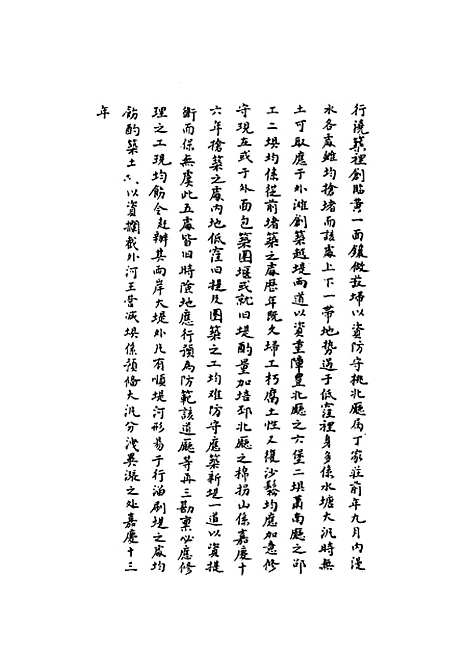 行澆築裡創貼黃一面鑲做护埽以資防守桃北廳屬丁家莊前年九月內漫
水各處雖均搶堵而該處上下一帶地勢過于低窪裡身多係水塘大汛時無
土可取應于外灘創築越堤兩道以資重障豊北廳之六堡二埧蕭南廳之郘
工二埧均係從前堵築之處歷年既久埽工朽腐土性又復沙鬆均應加意修
守現在或于外面包築圈堰或就旧堤酌量加培邳北廳之棉拐山係嘉慶十
六年搶築之處內地低窪旧提及圈築之工均难防守應築新堤一道以資提
衛而保無虞此五處皆旧時險地應行預為防範該道廳等再三勘稟必應修
理之工現均飭令赶辦其兩岸大堤外凡有順堤河形易于行溜刷堤之處均
飭酌築土以資攔截外河王营減埧係預備大汛分洩異漲之处嘉慶十三
年